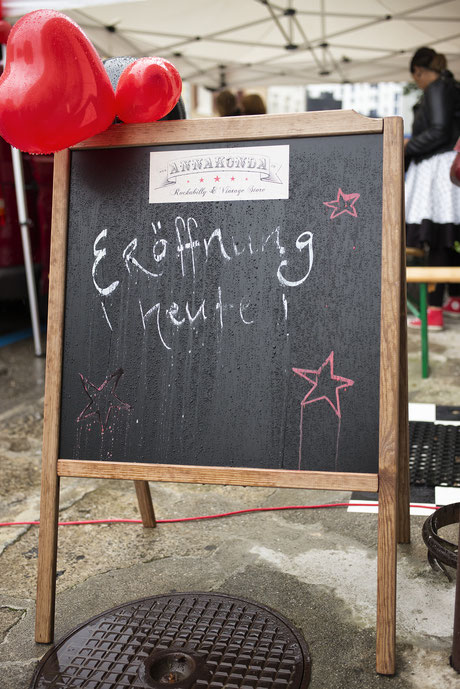 ANNAKONDA
Rockabilly & Vintage Store
Eröffnung
heute!